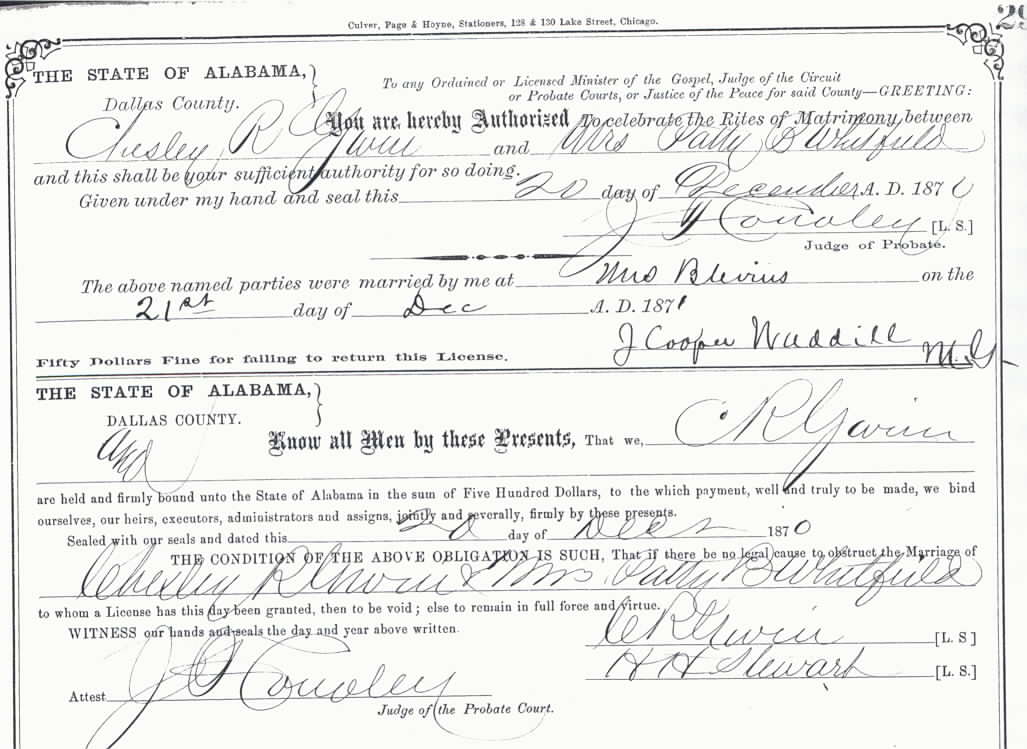 Culver, Page & Hoyne, Stationers, 128 & 130 Lake Street, Chicago.
29
THE STATE OF ALABAMA,
Dallas County.
To any Ordained or Licensed Minister of the Gospel, Judge of the Circuit
or Probate Courts, or Justice of the Peace for said County—GREETING:
You are hereby Authorized To celebrate the Rites of Matrimony between
Chesley R Gwin and Mrs Patty B Whitfield
and this shall be your sufficient authority for so doing.
Given under my hand and seal this 20 day of December A. D. 1870
J F Conoley [L. S.]
Judge of Probate.
The above named parties were married by me at Mrs Blevins on the
21st day of Dec A. D. 1871
J Cooper Waddill M.G.
Fifty Dollars Fine for failing to return this License.
THE STATE OF ALABAMA,
DALLAS COUNTY.
Know all Men by these Presents, That we, C R Gwin
and
are held and firmly bound unto the State of Alabama in the sum of Five Hundred Dollars, to the which payment, well and truly to be made, we bind
ourselves, our heirs, executors, administrators and assigns, jointly and severally, firmly by these presents.
Sealed with our seals and dated this 20 day of Decr 1870
THE CONDITION OF THE ABOVE OBLIGATION IS SUCH, That if there be no legal cause to obstruct the Marriage of
Chesley R Gwin & Mrs Patty B Whitfield
to whom a License has this day been granted, then to be void; else to remain in full force and virtue.
WITNESS our hands and seals the day and year above written.
C R Gwin [L. S]
H H Stewart [L. S.]
Attest J F Conoley
Judge of the Probate Court.